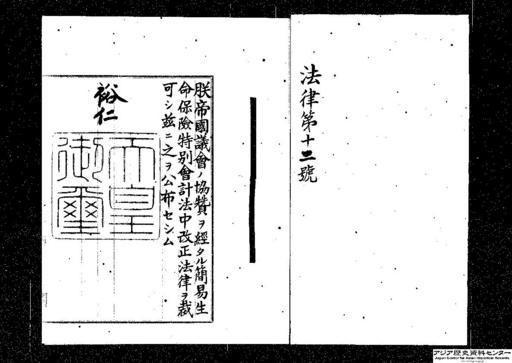 法律第十二號
朕帝國議會ノ協贊ヲ經タル簡易生
命保險特別會計法中改正法律ヲ裁
可シ茲ニ之ヲ公布セシム
裕仁
天皇
御璽
アジア歴史資料センター
Japan Center for Asian Historical Records